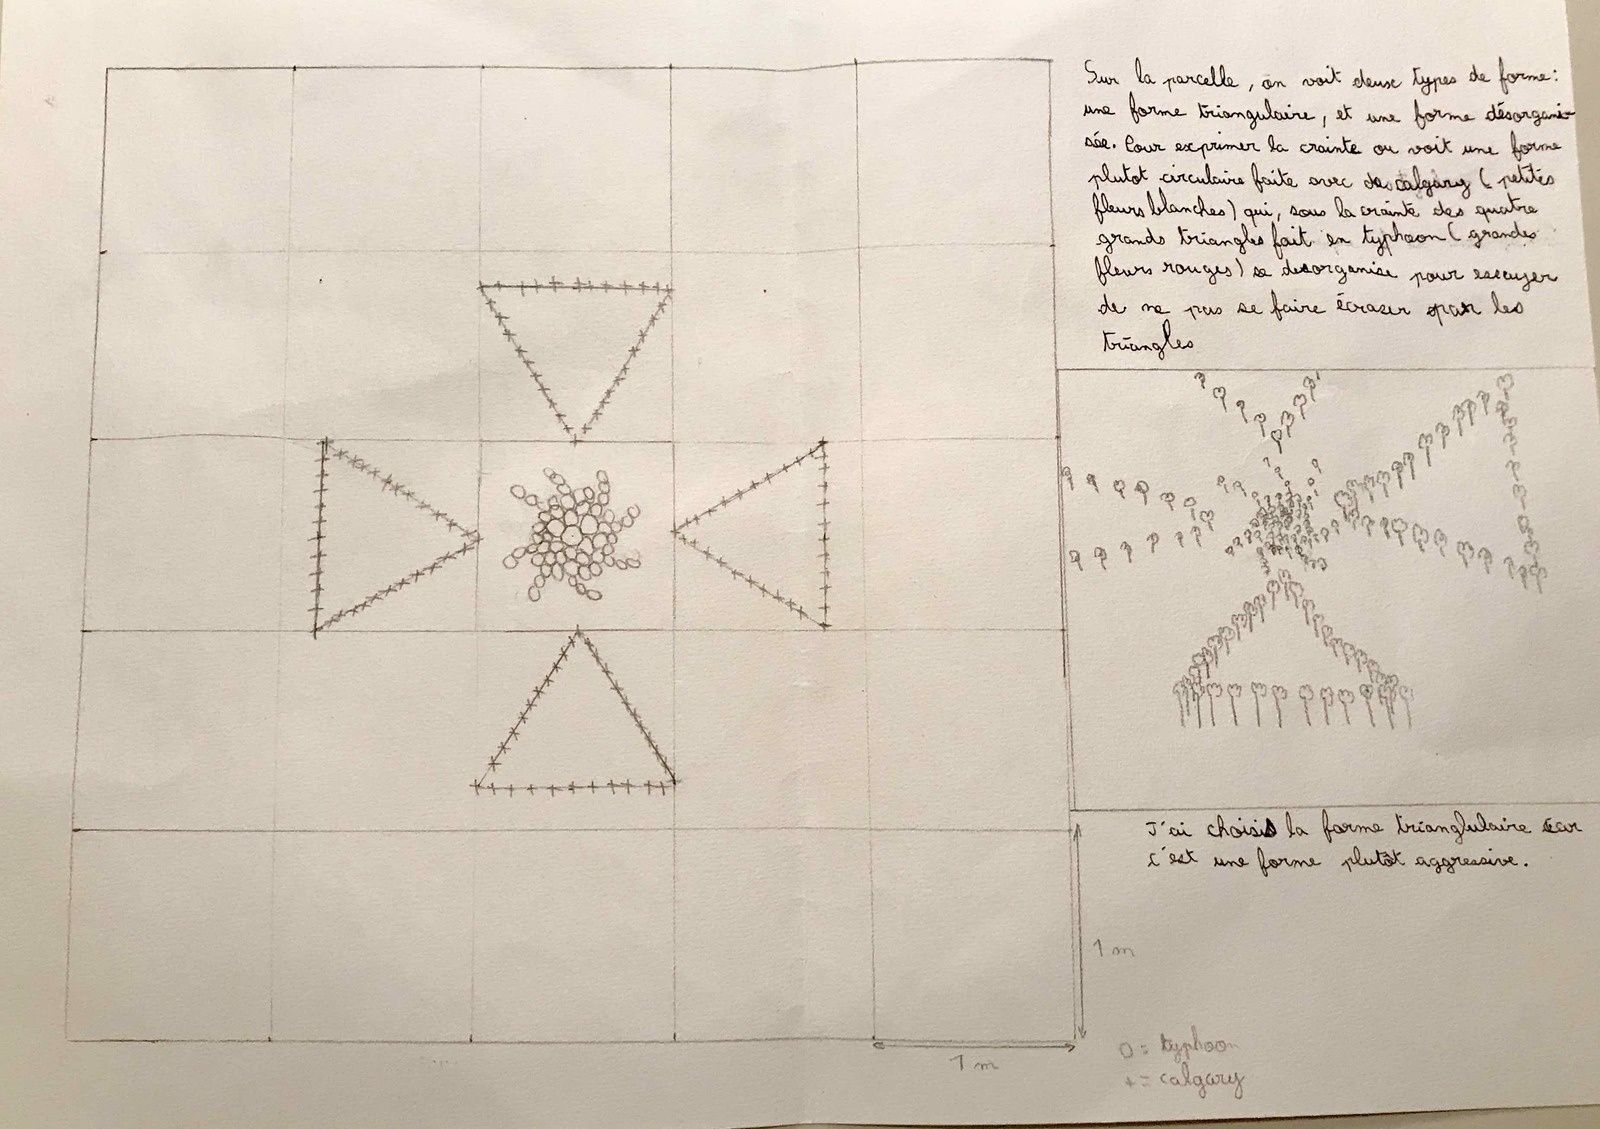 Sur la parcelle, on voit deux types de forme:
une forme triangulaire, et une forme désorgani-
sée. Pour exprimer la crainte on voit une forme
plutot circulaire faite avec de calgary (petites
fleurs blanches) qui, sous la crainte des quatre
grands triangles fait en typhoon (grandes
fleurs rouges) se desorganise pour essayer
de ne pas se faire écraser par les
triangles
J'ai choisis la forme trianglulaire car
c'est une forme plutôt aggressive.
1 m
1 m
O = typhoon
+ = calgary